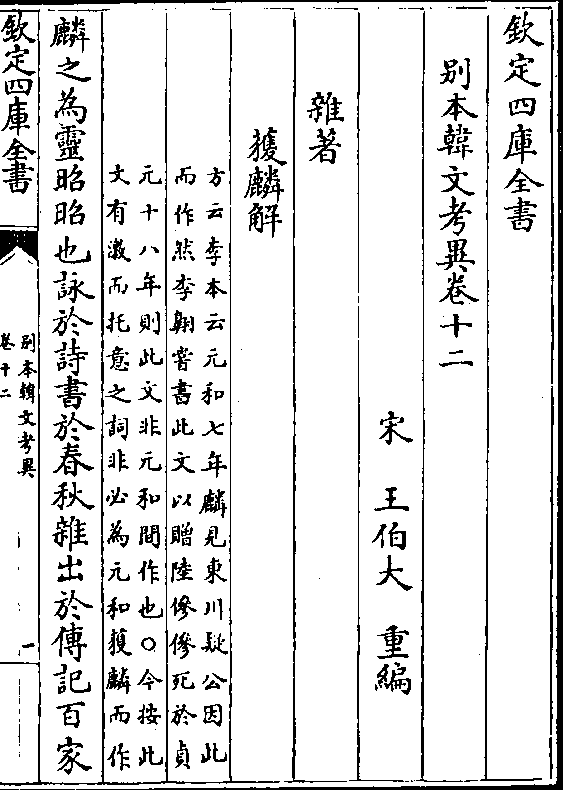 欽定四庫全書
別本韓文考異卷十二
宋　王伯大　重編
雜著
獲麟解
方云李本云元和七年麟見東川疑公因此
而作然李翱嘗書此文以贈陸傪傪死於貞
元十八年則此文非元和間作也○今按此
文有激而托意之詞非必為元和獲麟而作
麟之為靈昭昭也詠於詩書於春秋雜出於傳記百家
欽定四庫全書
別本韓文考異
卷十二
一